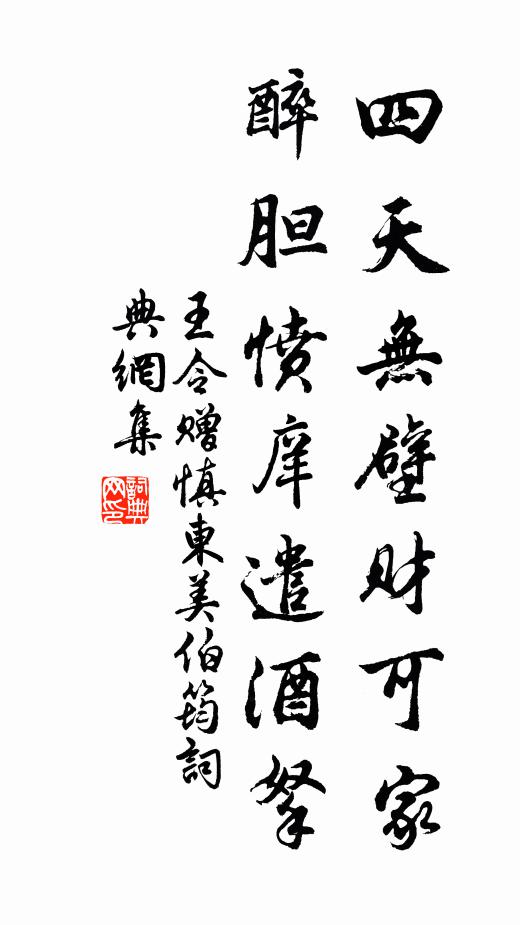 四天無壁财可家
醉胆憤庠遣酒拏
王令赠慎東美伯筠詞
典網集
詞典网印